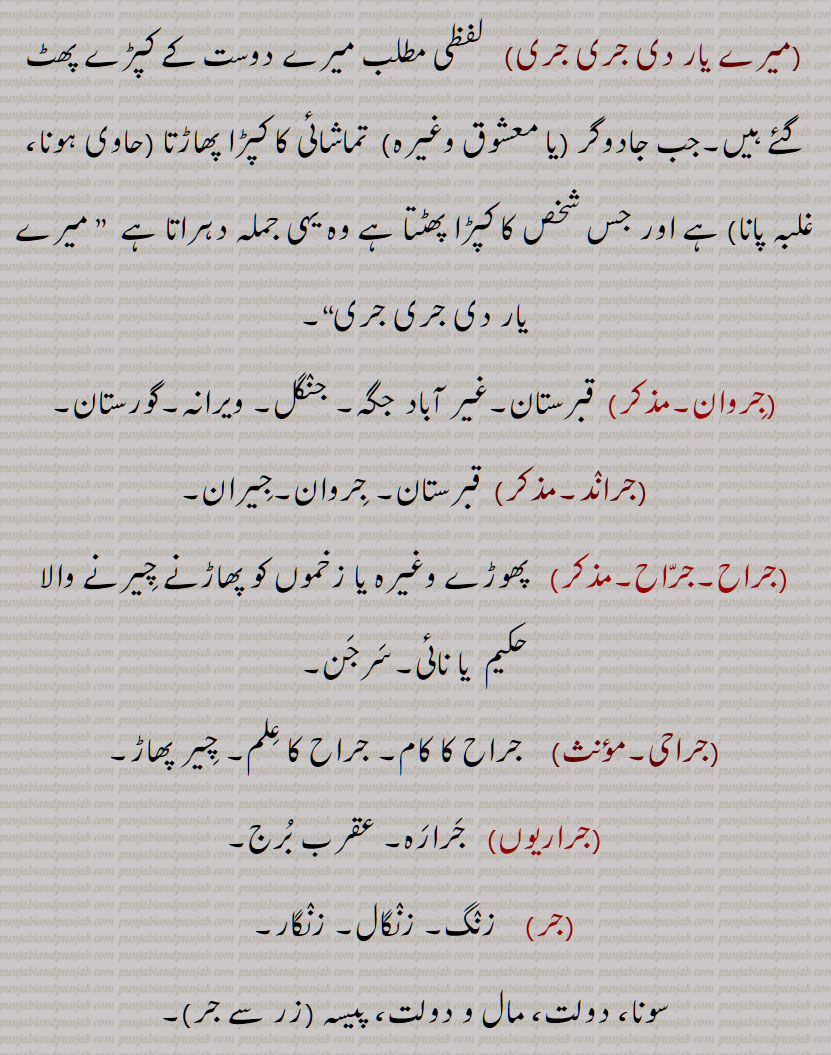 (میرے یار دی جری جری) لفظی مطلب میرے دوست کے کپڑے پھٹ
گئے ہیں۔ جب جادوگر (یا معشوق وغیرہ) تماشائی کا کپڑا پھاڑتا (حاوی ہونا،
غلبہ پانا) ہے اور جس شخص کا کپڑا پھٹتا ہے وہ یہی جملہ دہراتا ہے ”میرے
یار دی جری جری“۔
(جِروان۔مذکر) قبرستان۔غیر آباد جگہ۔ جنگل۔ ویرانہ۔گورستان۔
(جرانْد۔مذکر) قبرستان۔ جِروان۔جِیران۔
(جراح۔جرّاح۔مذکر) پھوڑے وغیرہ یا زخموں کو پھاڑنے چِیرنے والا
حکیم یا نائی۔ سَرجَن۔
(جراحی۔مؤنث) جراح کا کام۔ جراح کا عِلم۔ چِیر پھاڑ۔
(جراریوں) جَرارَہ۔ عقرب بُرج۔
(جر) زنْگ۔ زنْگال۔ زنْگار۔
سونا، دولت، مال و دولت، پیسہ (زر سے جر)۔